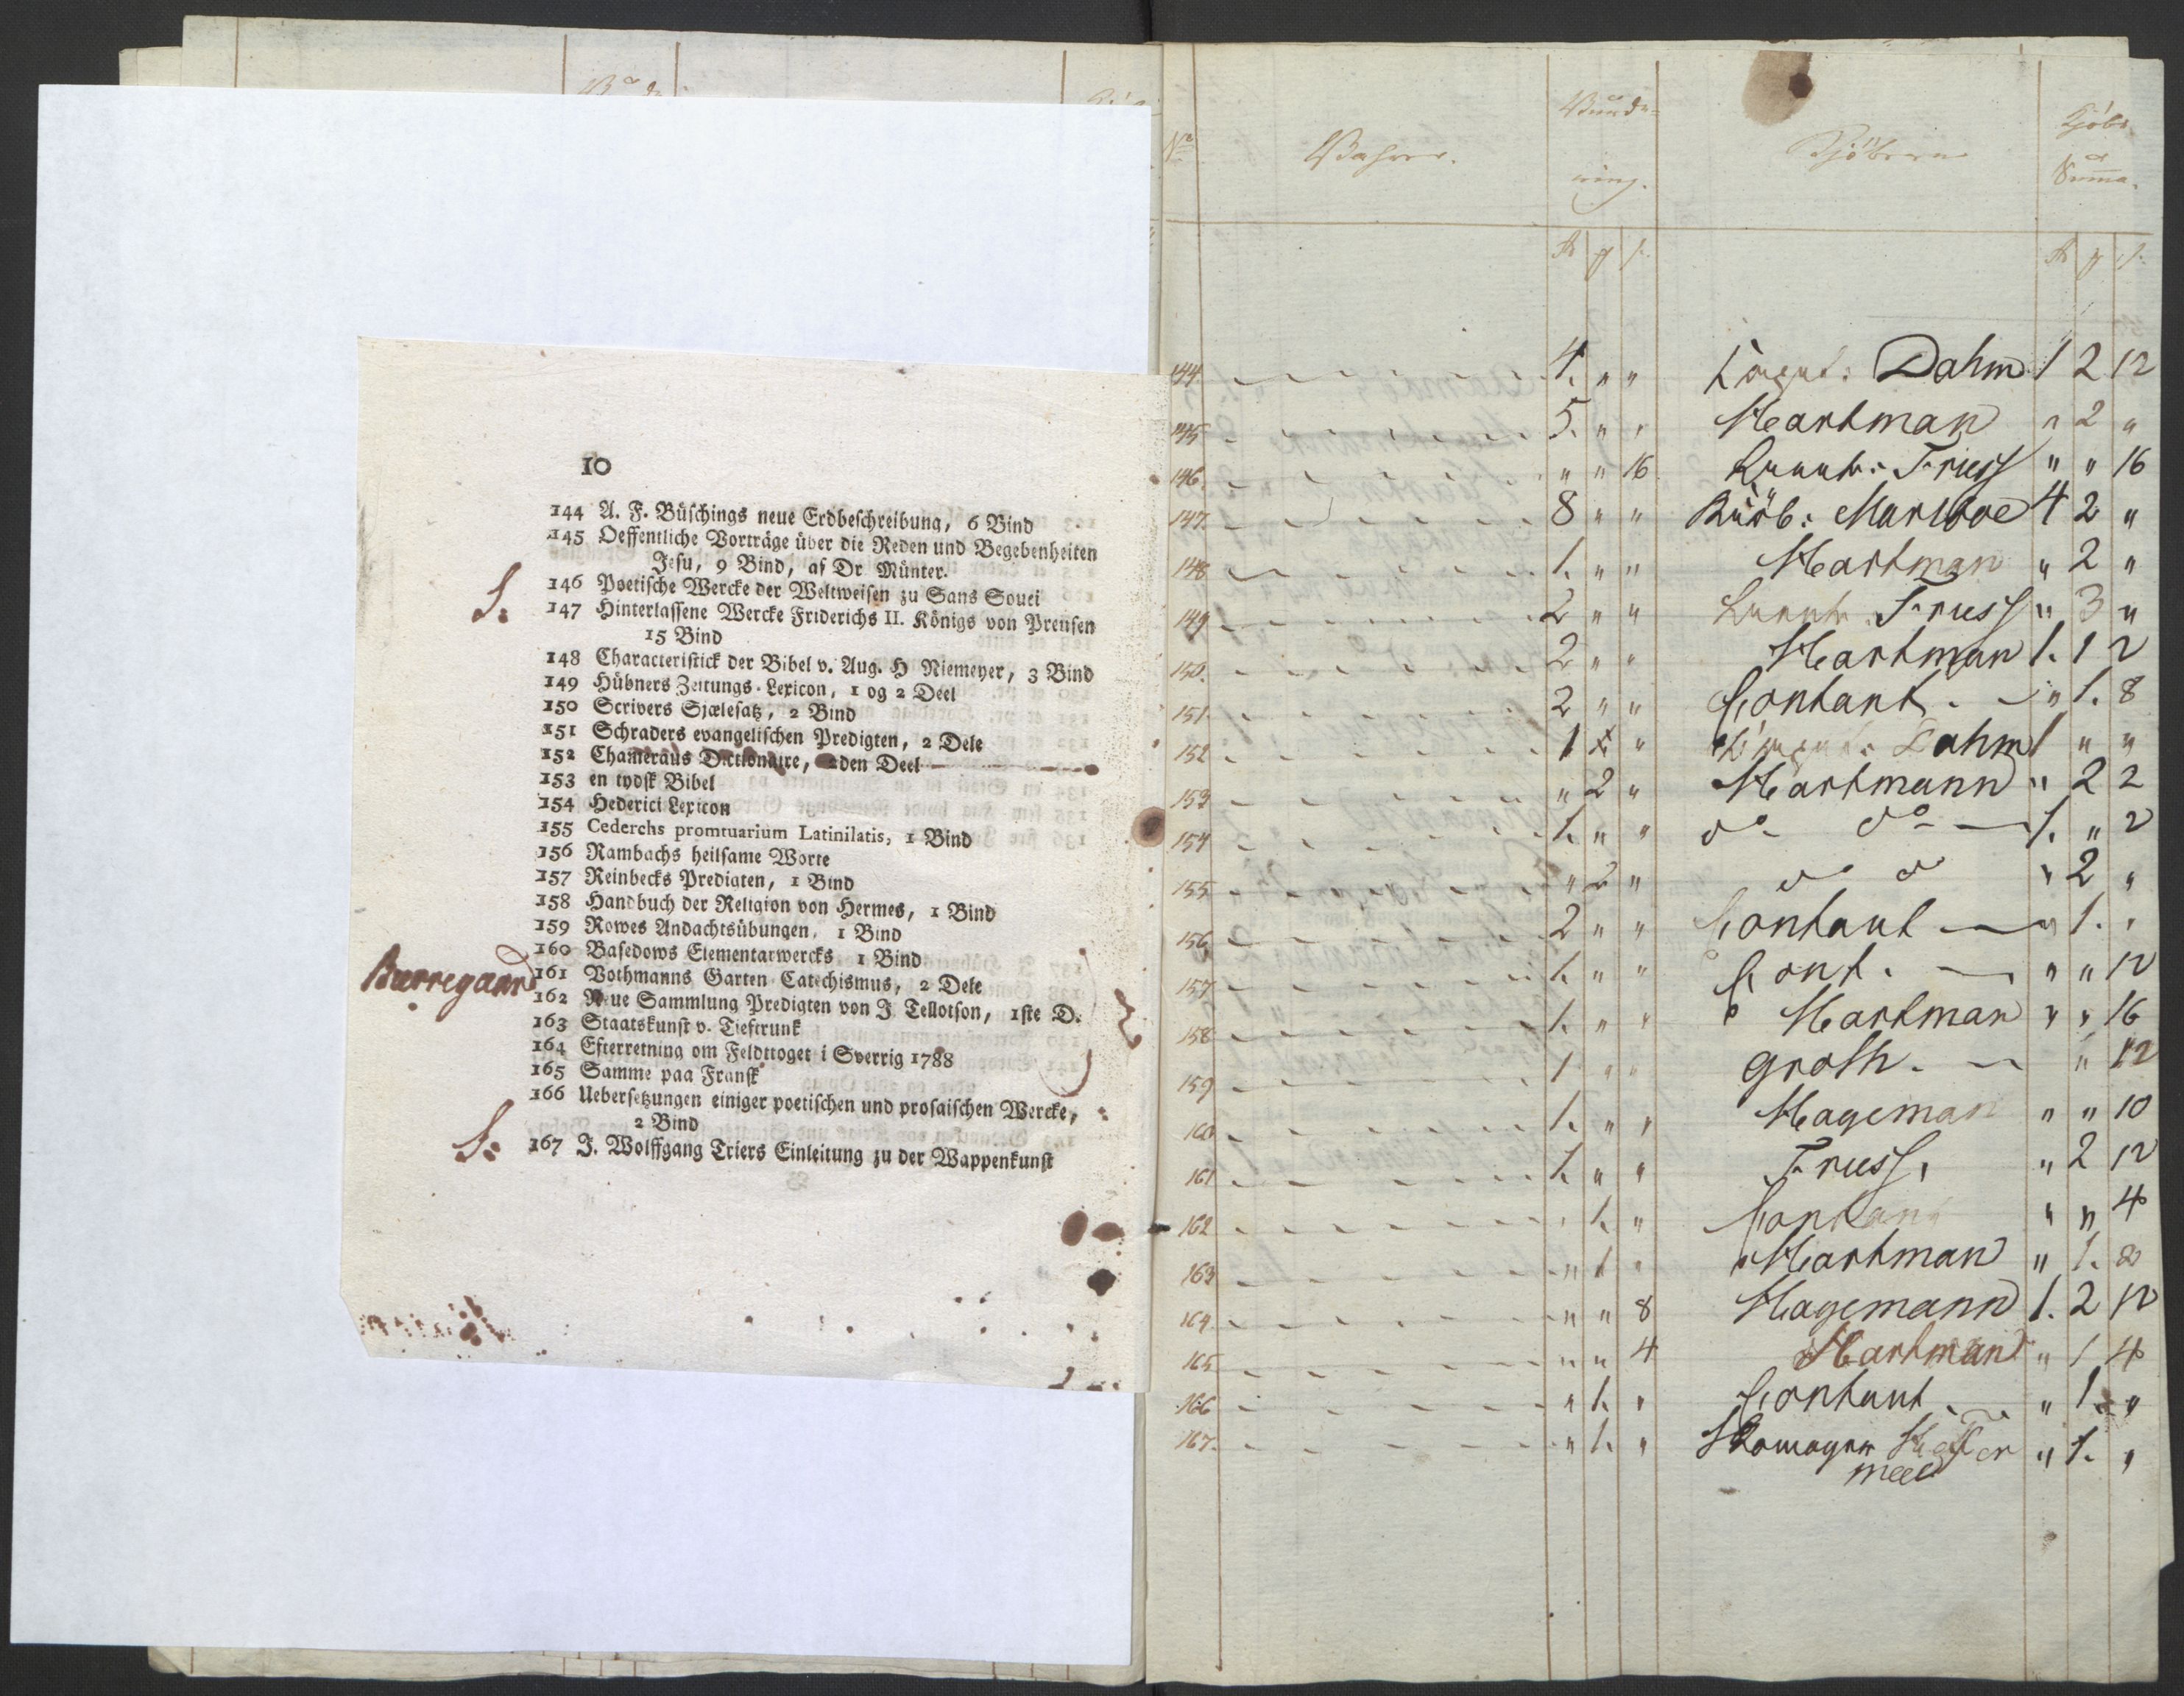 10
144 A. F. Büschings neue Erdbeschreibung, 6 Bind
145 Oeffentliche Vorträge über die Reden und Begebenheiten
Jesu, 9 Bind, af Dr Münter.
146 Poetische Wercke der Weltweisen zu Sans Souci
147 Hinterlassene Wercke Friderichs II. Königs von Preusen
15 Bind
148 Characteristick der Bibel v. Aug. H Niemeyer, 3 Bind
149 Hübners Zeitungs-Lexicon, 1 og 2 Deel
150 Scrivers Sjælesatz, 2 Bind
151 Schraders evangelischen Predigten, 2 Dele
152 Chameraus Dictionaire, 2den Deel
153 en tydsk Bibel
154 Hederici Lexicon
155 Cederchs promtuarium Latinilatis, 1 Bind
156 Rambachs heilsame Worte
157 Reinbecks Predigten, 1 Bind
158 Handbuch der Religion von Hermes, 1 Bind
159 Rowes Andachtsübungen, 1 Bind
160 Basedows Elementarwercks 1 Bind
161 Vothmanns Garten Catechismus, 2 Dele
162 Neue Sammlung Predigten von J Tellotson, 1ste D.
163 Staatskunst v. Tieftrunk
164 Efterretning om Feldttoget i Sverrig 1788
165 Samme paa Fransk
166 Uebersetzungen einiger poetischen und prosaischen Wercke,
2 Bind
167 J. Wolffgang Triers Einleitung zu der Wappenkunst
Burregaard
No Wahrer. Wurde- Kjøberen Kjøbe
ring. Summa.
144. 4. " " Dahm 1 2 12
145 5. " " Hartman " 2 "
146. " " 16 Friess " " 16
147. 8 " " Kiöb: Marlboe 4 2 "
148 1. " " Hartman " 2 "
149 2 " " Friess " 3 "
150. 2 " " Hartman 1. 1 2
151. 2 " " Contant. " 1. 8
152 1 " Dahm 1 " "
153 " 2 " Hartmann " 2 2
154 1. " " do do 1. " 2
155 " 2 " do do " 2 "
156 2 " " Contant " 1. "
157 1. " " Cont. " " 12
158 1. " " Hartman " " 16
159 1 " " Groth. " 12
160 1. " " Hageman " " 10
161 1. " " Friess, " 2 12
162 " 1. " Contant " " 4
163 " 1 " Hartman " 1. 8
164. " " 8 Hagemann 1. 2 12
165 " " 4 Hartmann " 1 4
166 " 1. " Contant " 1. "
167. " 1. " Skomager " 1. "